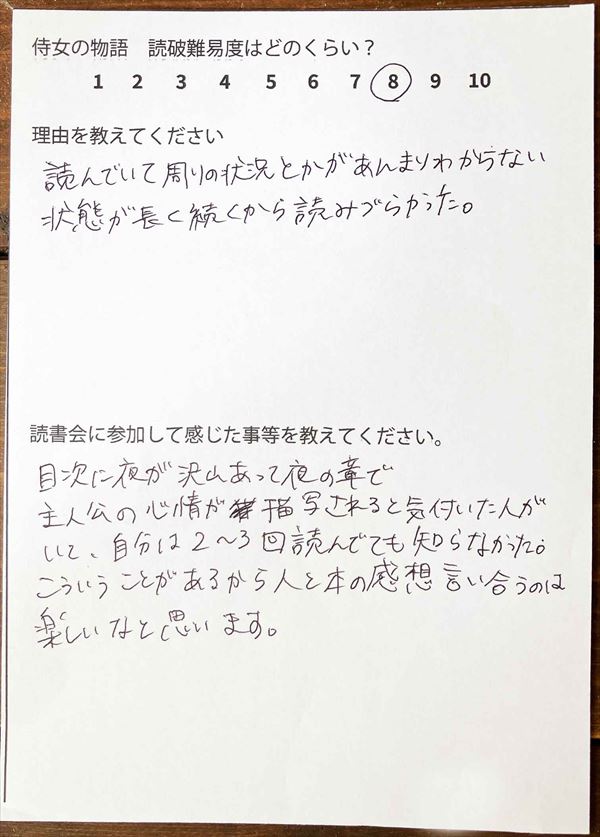 侍女の物語　読破難易度はどのくらい？
1 2 3 4 5 6 7 8 9 10
理由を教えてください
読んでいて周りの状況とかがあんまりわからない
状態が長く続くから読みづらかった。
読書会に参加して感じた事等を教えてください。
目次に夜が沢山あって夜の章で
主人公の心情が描写されると気付いた人が
いて、自分は2〜3回読んでても知らなかった。
こういうことがあるから人と本の感想言い合うのは
楽しいなと思います。